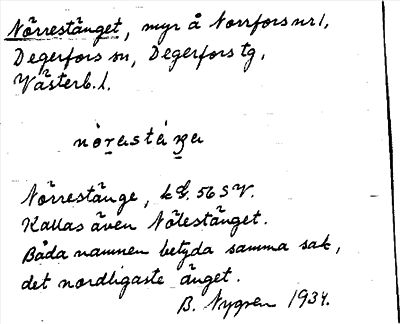 Nörrestänget, myr å Norrfors nr 1,
Degerfors sn, Degerfors tg,
Västerb. l.
Nörrestänge, k Bl. 56 SV.
Kallas även Nölestänget.
Båda namnen betyda samma sak,
det nordligaste änget.
B. Nygren 1934.